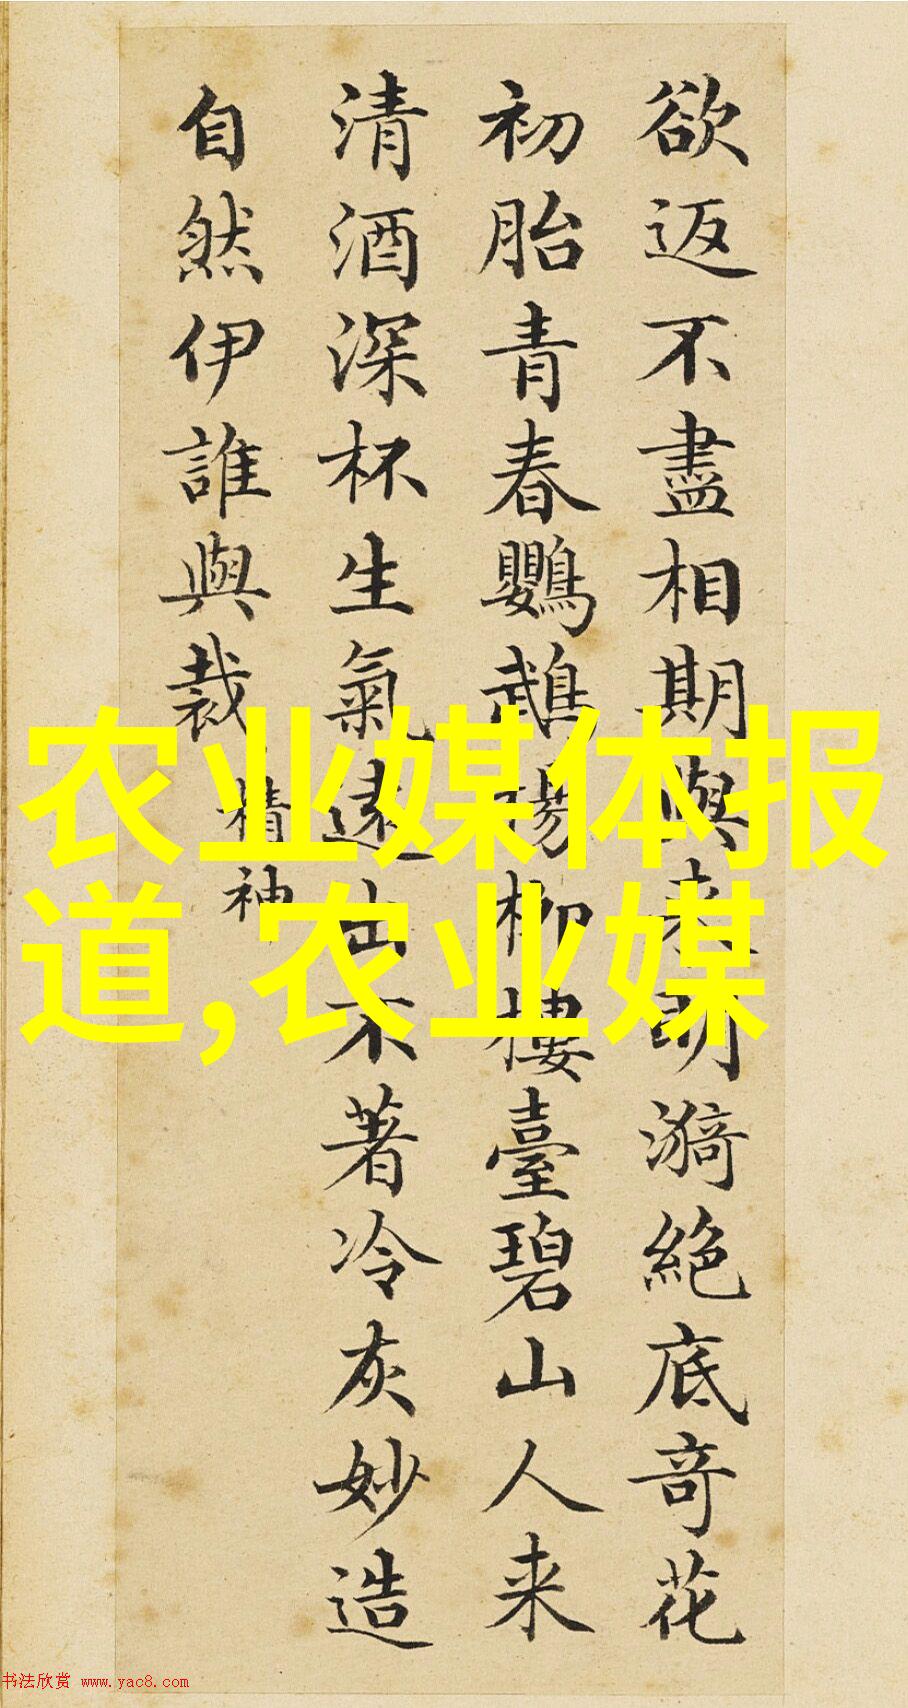 欲返不盡相期與来明漪絕底奇花
初胎青春鸚鵡楊柳樓臺碧山人来
清酒深杯生氣遠出不著冷灰妙造
自然伊誰與裁
精神
农业媒体报
道,农业媒
书法欣赏 www.yac8.com